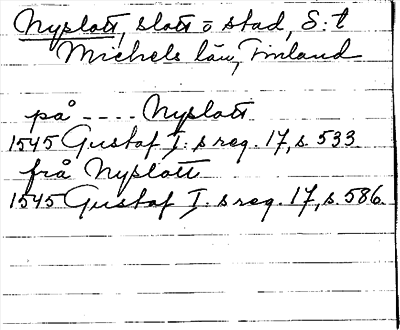 Nyslott, slott o stad, S:t
Michels län, Finland
på ---- Nyslott
1545 Gustaf I:s reg. 17, s. 533.
från Nyslott
1545 Gustaf I:s reg. 17, s. 586.